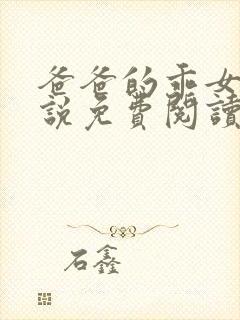 爸爸的乖女
說免費閱讀
石鑫